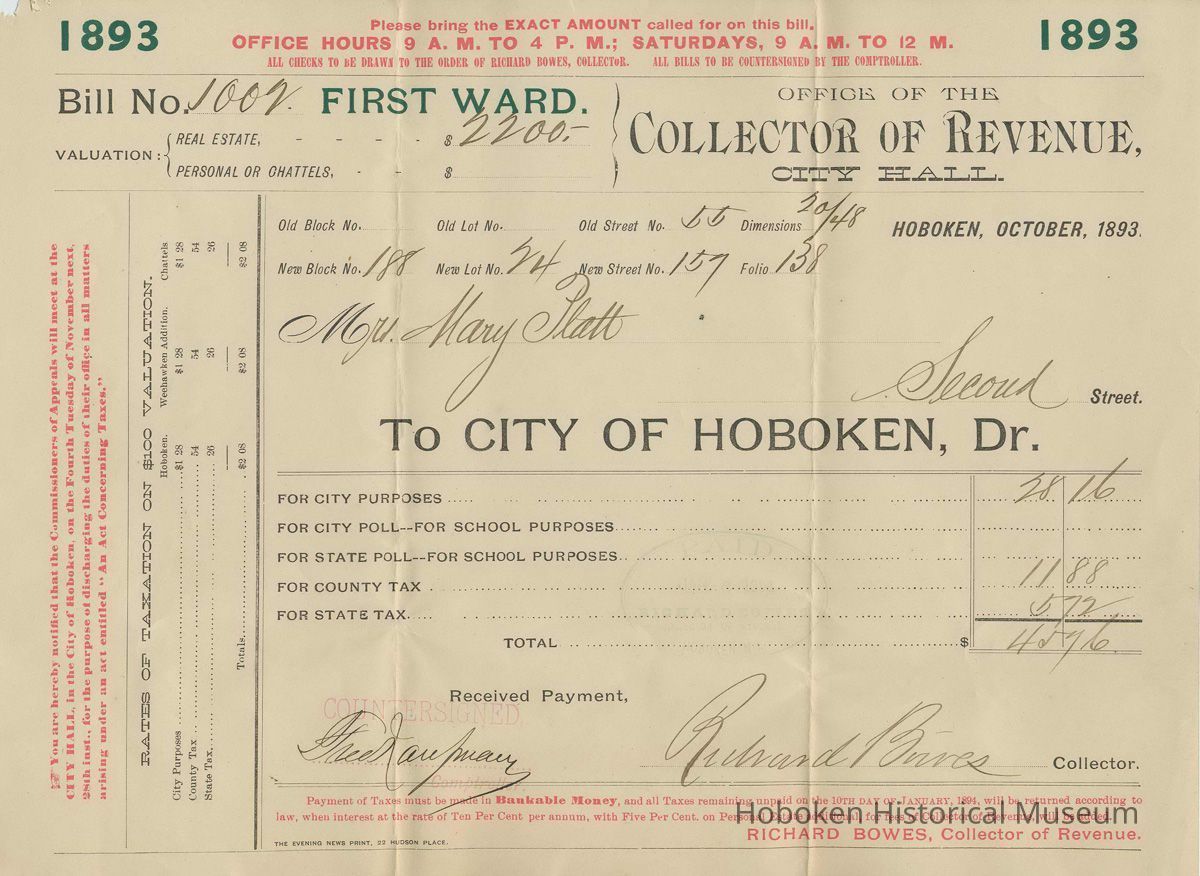 1893
Please bring the EXACT AMOUNT called for on this bill.
OFFICE HOURS 9 A. M. TO 4 P. M.; SATURDAYS, 9 A. M. TO 12 M.
ALL CHECKS TO BE DRAWN TO THE ORDER OF RICHARD BOWES, COLLECTOR. ALL BILLS TO BE COUNTERSIGNED BY THE COMPTROLLER.
1893
Bill No. 1002. FIRST WARD.
VALUATION: REAL ESTATE, - - - - $ 2200.-
PERSONAL OR CHATTELS, - - $
OFFICE OF THE
COLLECTOR OF REVENUE,
CITY HALL.
Old Block No. Old Lot No. Old Street No. 55 Dimensions 20/48
HOBOKEN, OCTOBER, 1893.
New Block No. 188 New Lot No. 24 New Street No. 157 Folio 138
Mrs. Mary Platt
Second Street.
To CITY OF HOBOKEN, Dr.
FOR CITY PURPOSES 28 16
FOR CITY POLL--FOR SCHOOL PURPOSES
FOR STATE POLL--FOR SCHOOL PURPOSES
FOR COUNTY TAX 11 88
FOR STATE TAX 5 72
TOTAL $ 45 76
Received Payment,
COUNTERSIGNED
Comptroller
Richard Bowes Collector.
Payment of Taxes must be made in Bankable Money, and all Taxes remaining unpaid on the 10TH DAY OF JANUARY, 1894, will be returned according to
law, when interest at the rate of Ten Per Cent per annum, with Five Per Cent. on Personal Estate additional, for fees of Collector of Revenue, will be added.
RICHARD BOWES, Collector of Revenue.
THE EVENING NEWS PRINT, 22 HUDSON PLACE.
Hoboken Historical Museum
You are hereby notified that the Commissioners of Appeals will meet at the
CITY HALL, in the City of Hoboken, on the Fourth Tuesday of November next,
28th inst., for the purpose of discharging the duties of their office in all matters
arising under an act entitled "An Act Concerning Taxes."
RATES OF TAXATION ON $100 VALUATION.
Hoboken. Weehawken Addition. Chattels
City Purposes $1 28 $1 28 $1 28
County Tax 54 54 54
State Tax, 26 26 26
Totals $2 08 $2 08 $2 08